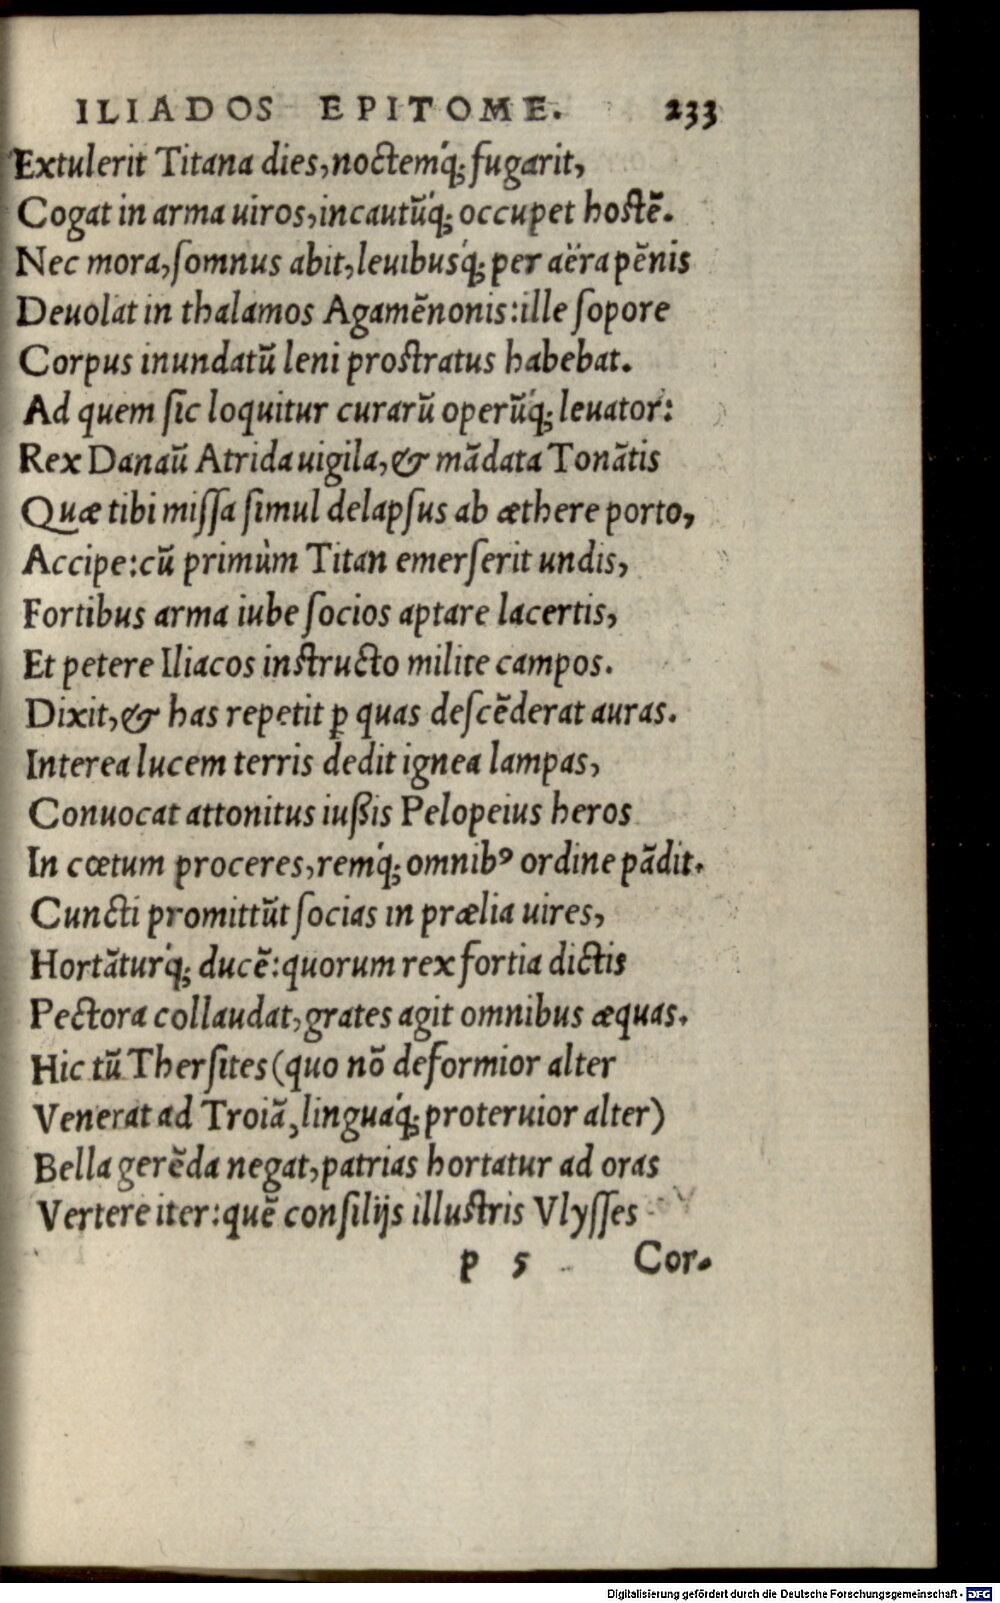 ILIADOS EPITOME. 233
Extulerit Titana dies, noctemq́; fugarit,
Cogat in arma uiros, incautũq́; occupet hostẽ.
Nec mora, ſomnus abit, leuibusq́; per aëra pẽnis
Deuolat in thalamos Agamẽnonis: ille ſopore
Corpus inundatũ leni prostratus habebat.
Ad quem ſic loquitur curarũ operũq́; leuator:
Rex Danaũ Atrida uigila, & mãdata Tonãtis
Quæ tibi miſſa ſimul delapſus ab æthere porto,
Accipe: cũ primùm Titan emerſerit undis,
Fortibus arma iube ſocios aptare lacertis,
Et petere Iliacos instructo milite campos.
Dixit, & has repetit ꝑ quas deſcẽderat auras.
Interea lucem terris dedit ignea lampas,
Conuocat attonitus iußis Pelopeius heros
In cœtum proceres, remq́; omnibꝰ ordine pãdit.
Cuncti promittũt ſocias in prælia uires,
Hortãturq́; ducẽ: quorum rex fortia dictis
Pectora collaudat, grates agit omnibus æquas.
Hic tũ Therſites (quo nõ deformior alter
Venerat ad Troiã, linguaq́; proteruior alter)
Bella gerẽda negat, patrias hortatur ad oras
Vertere iter: quẽ conſilijs illustris Vlyſſes
p 5 Cor.
Digitalisierung gefördert durch die Deutsche Forschungsgemeinschaft - DFG